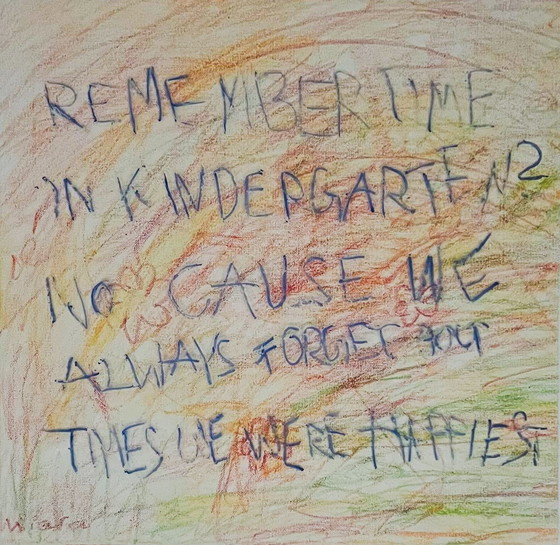 REMEMBER TIME
IN KINDERGARTEN?
NO CAUSE WE
ALWAYS FORGET
TIMES WE WERE HAPPIEST